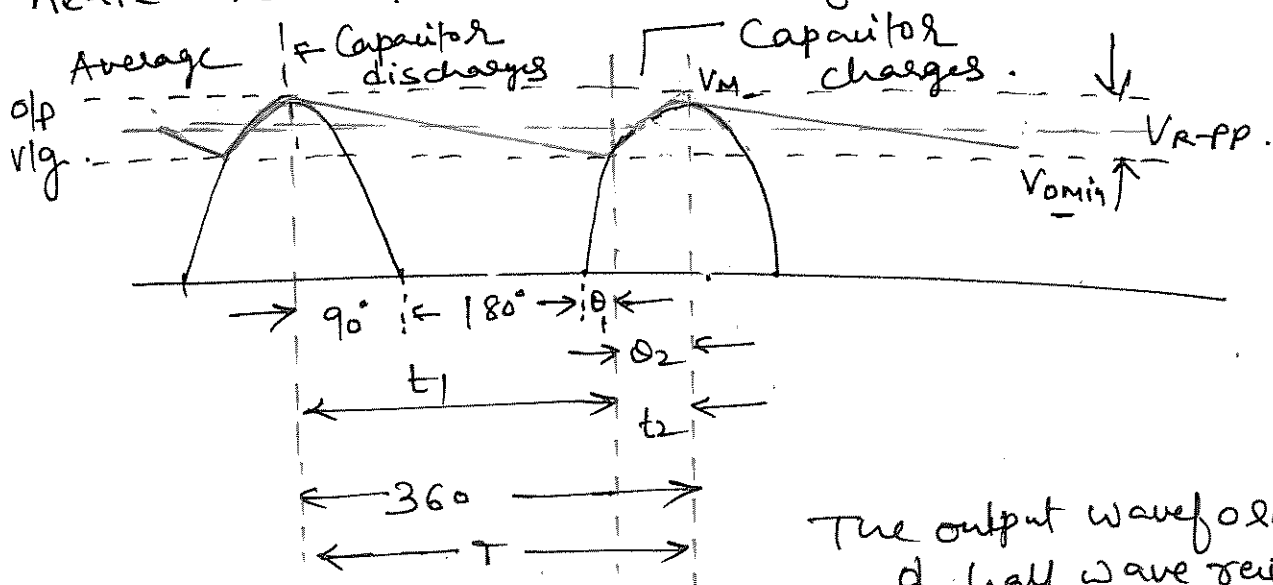 Average ← Capacitor discharges
Capacitor charges.
o/p v/g.
VM
VR-PP.
VoMin
90° 180° θ1
θ2
t1
t2
360
T
The output wavefo
half wave